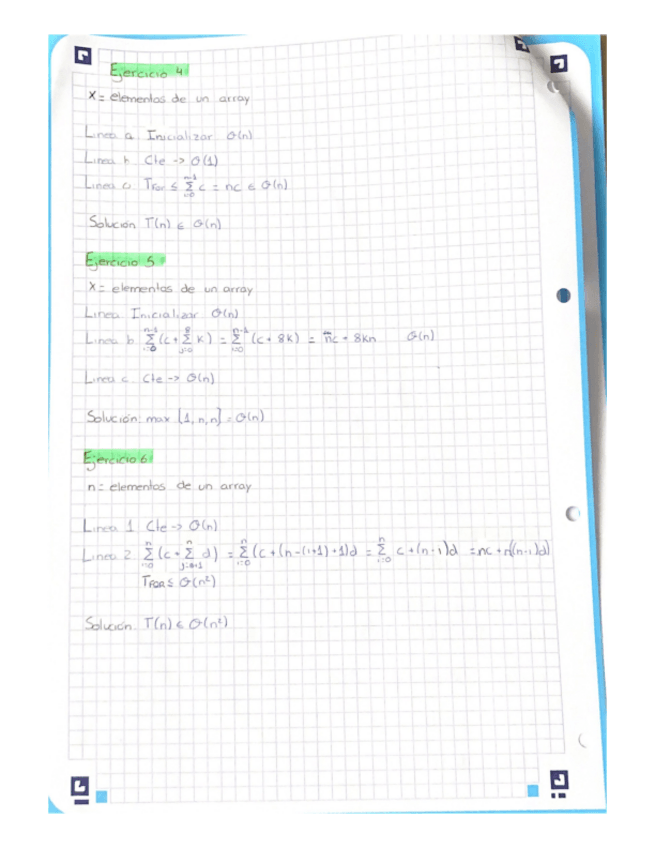 Ejercicio 4:
X = elementos de un array
Linea a. Inicializar O(n)
Linea b. Cte -> O(1)
Linea c. TFor ≤ n-1 Σ i=0 c = nc ∈ O(n)
Solución T(n) ∈ O(n)
Ejercicio 5:
X = elementos de un array
Linea Inicializar O(n)
Linea b. n-1 Σ i=0 (c + 8 Σ j=0 k) = n-1 Σ i=0 (c + 8k) = nc + 8kn O(n)
Linea c. Cte -> O(n)
Solución: max {1, n, n} = O(n)
Ejercicio 6:
n = elementos de un array
Linea 1. Cte -> O(n)
Linea 2. n Σ i=0 (c + n Σ d) = n Σ i=0 (c + (n-(i+1)+1)d = n Σ i=0 c + (n-i)d = nc + n((n-i)d)
TFOR ≤ O(n²)
Solución. T(n) ∈ O(n²)